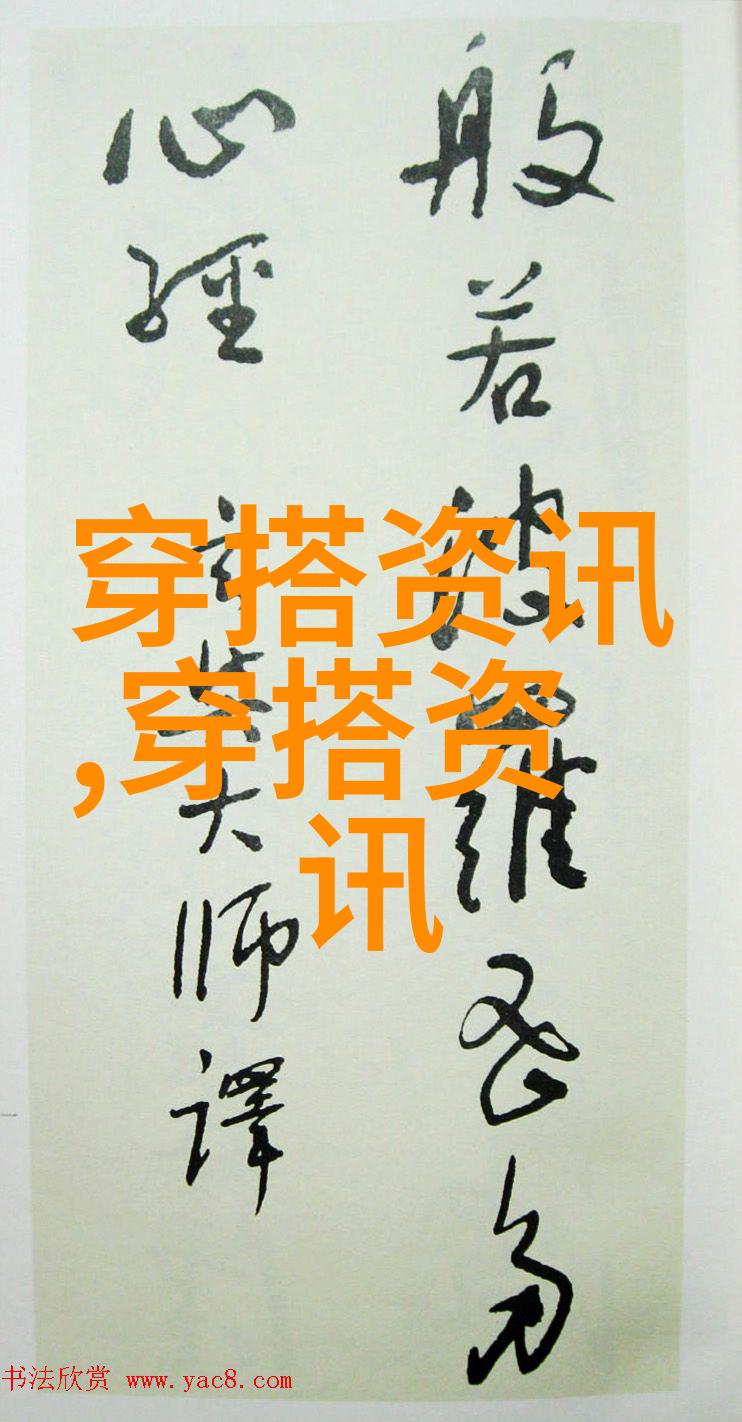 般若波羅密多
心經 玄奘大師譯
穿搭资讯
,穿搭资
讯
书法欣赏 www.yac8.com